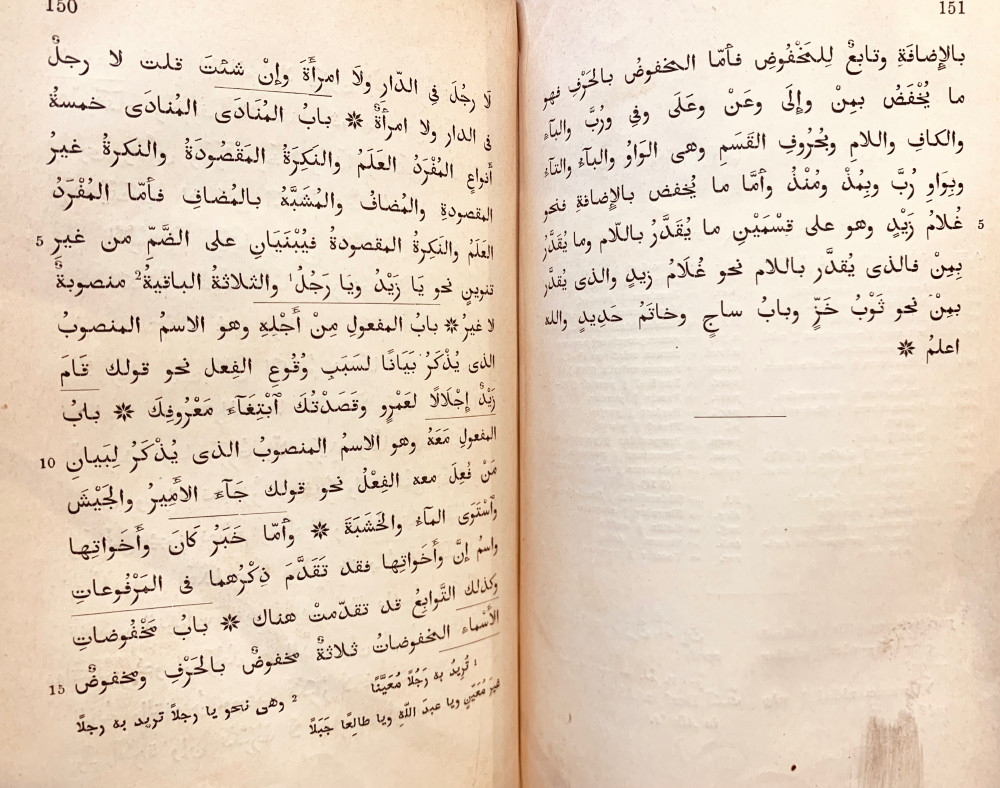 150
لَا رجُلَ فِى الدّارِ ولَا امرأَةَ وإنْ شئتَ قلت لا رجلٌ
فى الدار ولا امرأةٌ ✷ بابُ المُنَادَى المُنادَى خمسةُ
أنواعٍ المُفْرَدُ العَلَمُ والنَكِرَةُ المَقْصُودَةُ والنكرةُ غيرُ
المقصودةِ والمُضافُ والمُشَبَّهُ بالمُضافِ فأمّا المُفْرَدُ
5 العَلَمُ والنَكِرةُ المقصودةُ فيُبْنَيَانِ على الضَّمِّ من غيرِ
تنوينٍ نحو يَا زَيْدُ ويَا رَجُلُ¹ والثلاثةُ الباقيةُ² منصوبةٌ
لا غيرُ ✷ بابُ المفعولِ مِنْ أَجْلِهِ وهو الاسمُ المنصوبُ
الذى يُذْكَرُ بَيَانًا لسَبَبِ وُقُوعِ الفِعل نحو قولك قَامَ
زَيْدٌ إِجْلَالًا لعَمْرٍو وقَصَدْتُكَ ٱبْتِغَآءَ مَعْرُوفِكَ ✷ بابُ
10 المفعولِ مَعَهُ وهو الاسمُ المنصوبُ الذى يُذْكَرُ لِبَيَانِ
مَنْ فُعِلَ معه الفِعْلُ نحو قولك جَآءَ الأَمِيرُ والجَيْشَ
وٱسْتَوَى المآءُ والخَشَبَةَ ✷ وأمّا خَبَرُ كَانَ وأَخَواتِها
واسمُ إنَّ وأَخَواتِها فقد تَقَدَّمَ ذِكْرُهما فى المَرْفُوعاتِ
وكذلك التَّوابِعُ قد تقدّمتْ هناك ✷ بابُ مَخْفُوضاتِ
15 الأَسْماء المخفوضاتُ ثلاثةٌ مخفوضٌ بالحَرْفِ ومخفوضٌ
¹ تُرِيدُ به رَجُلًا مُعَيَّنًا ² وهى نحو يا رجلاً تريد به رجلًا
غيرَ مُعَيَّنٍ ويا عبدَ اللّٰهِ ويا طالِعًا جَبَلًا
151
بالإِضافَةِ وتابعٌ لِلمَخْفُوضِ فأمّا المخفوضُ بالحَرْفِ فهو
ما يُخْفَضُ بمِنْ وإلَى وعَنْ وعَلَى وفِى ورُبَّ والبآءِ
والكافِ واللامِ وبحُروفِ القَسَمِ وهى الوَاوُ والبآءُ والتآءُ
وبِوَاوِ رُبَّ وبِمُذْ ومُنْذُ وأمّا ما يُخفض بالإِضافةِ فنحو
5 غُلَامُ زَيْدٍ وهو على قسْمَيْنِ ما يُقَدَّرُ باللّام وما يُقَدَّرُ
بِمِنْ فالذى يُقدَّر باللام نحو غُلَامُ زيدٍ والذى يُقدَّر
بِمِنْ نحو ثَوْبُ خَزٍّ وبابُ ساجٍ وخاتَمُ حَدِيدٍ واللّٰه
اعلمُ ✷